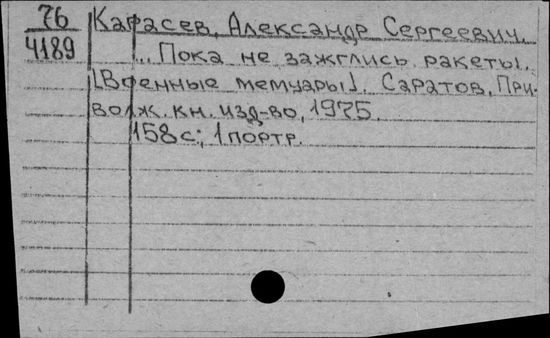 76 Карасев, Александр Сергеевич.
4189 ...Пока не зажглись ракеты.
[Военные мемуары]. Саратов, При-
волж. кн. изд-во, 1975.
158 с; 1 портр.